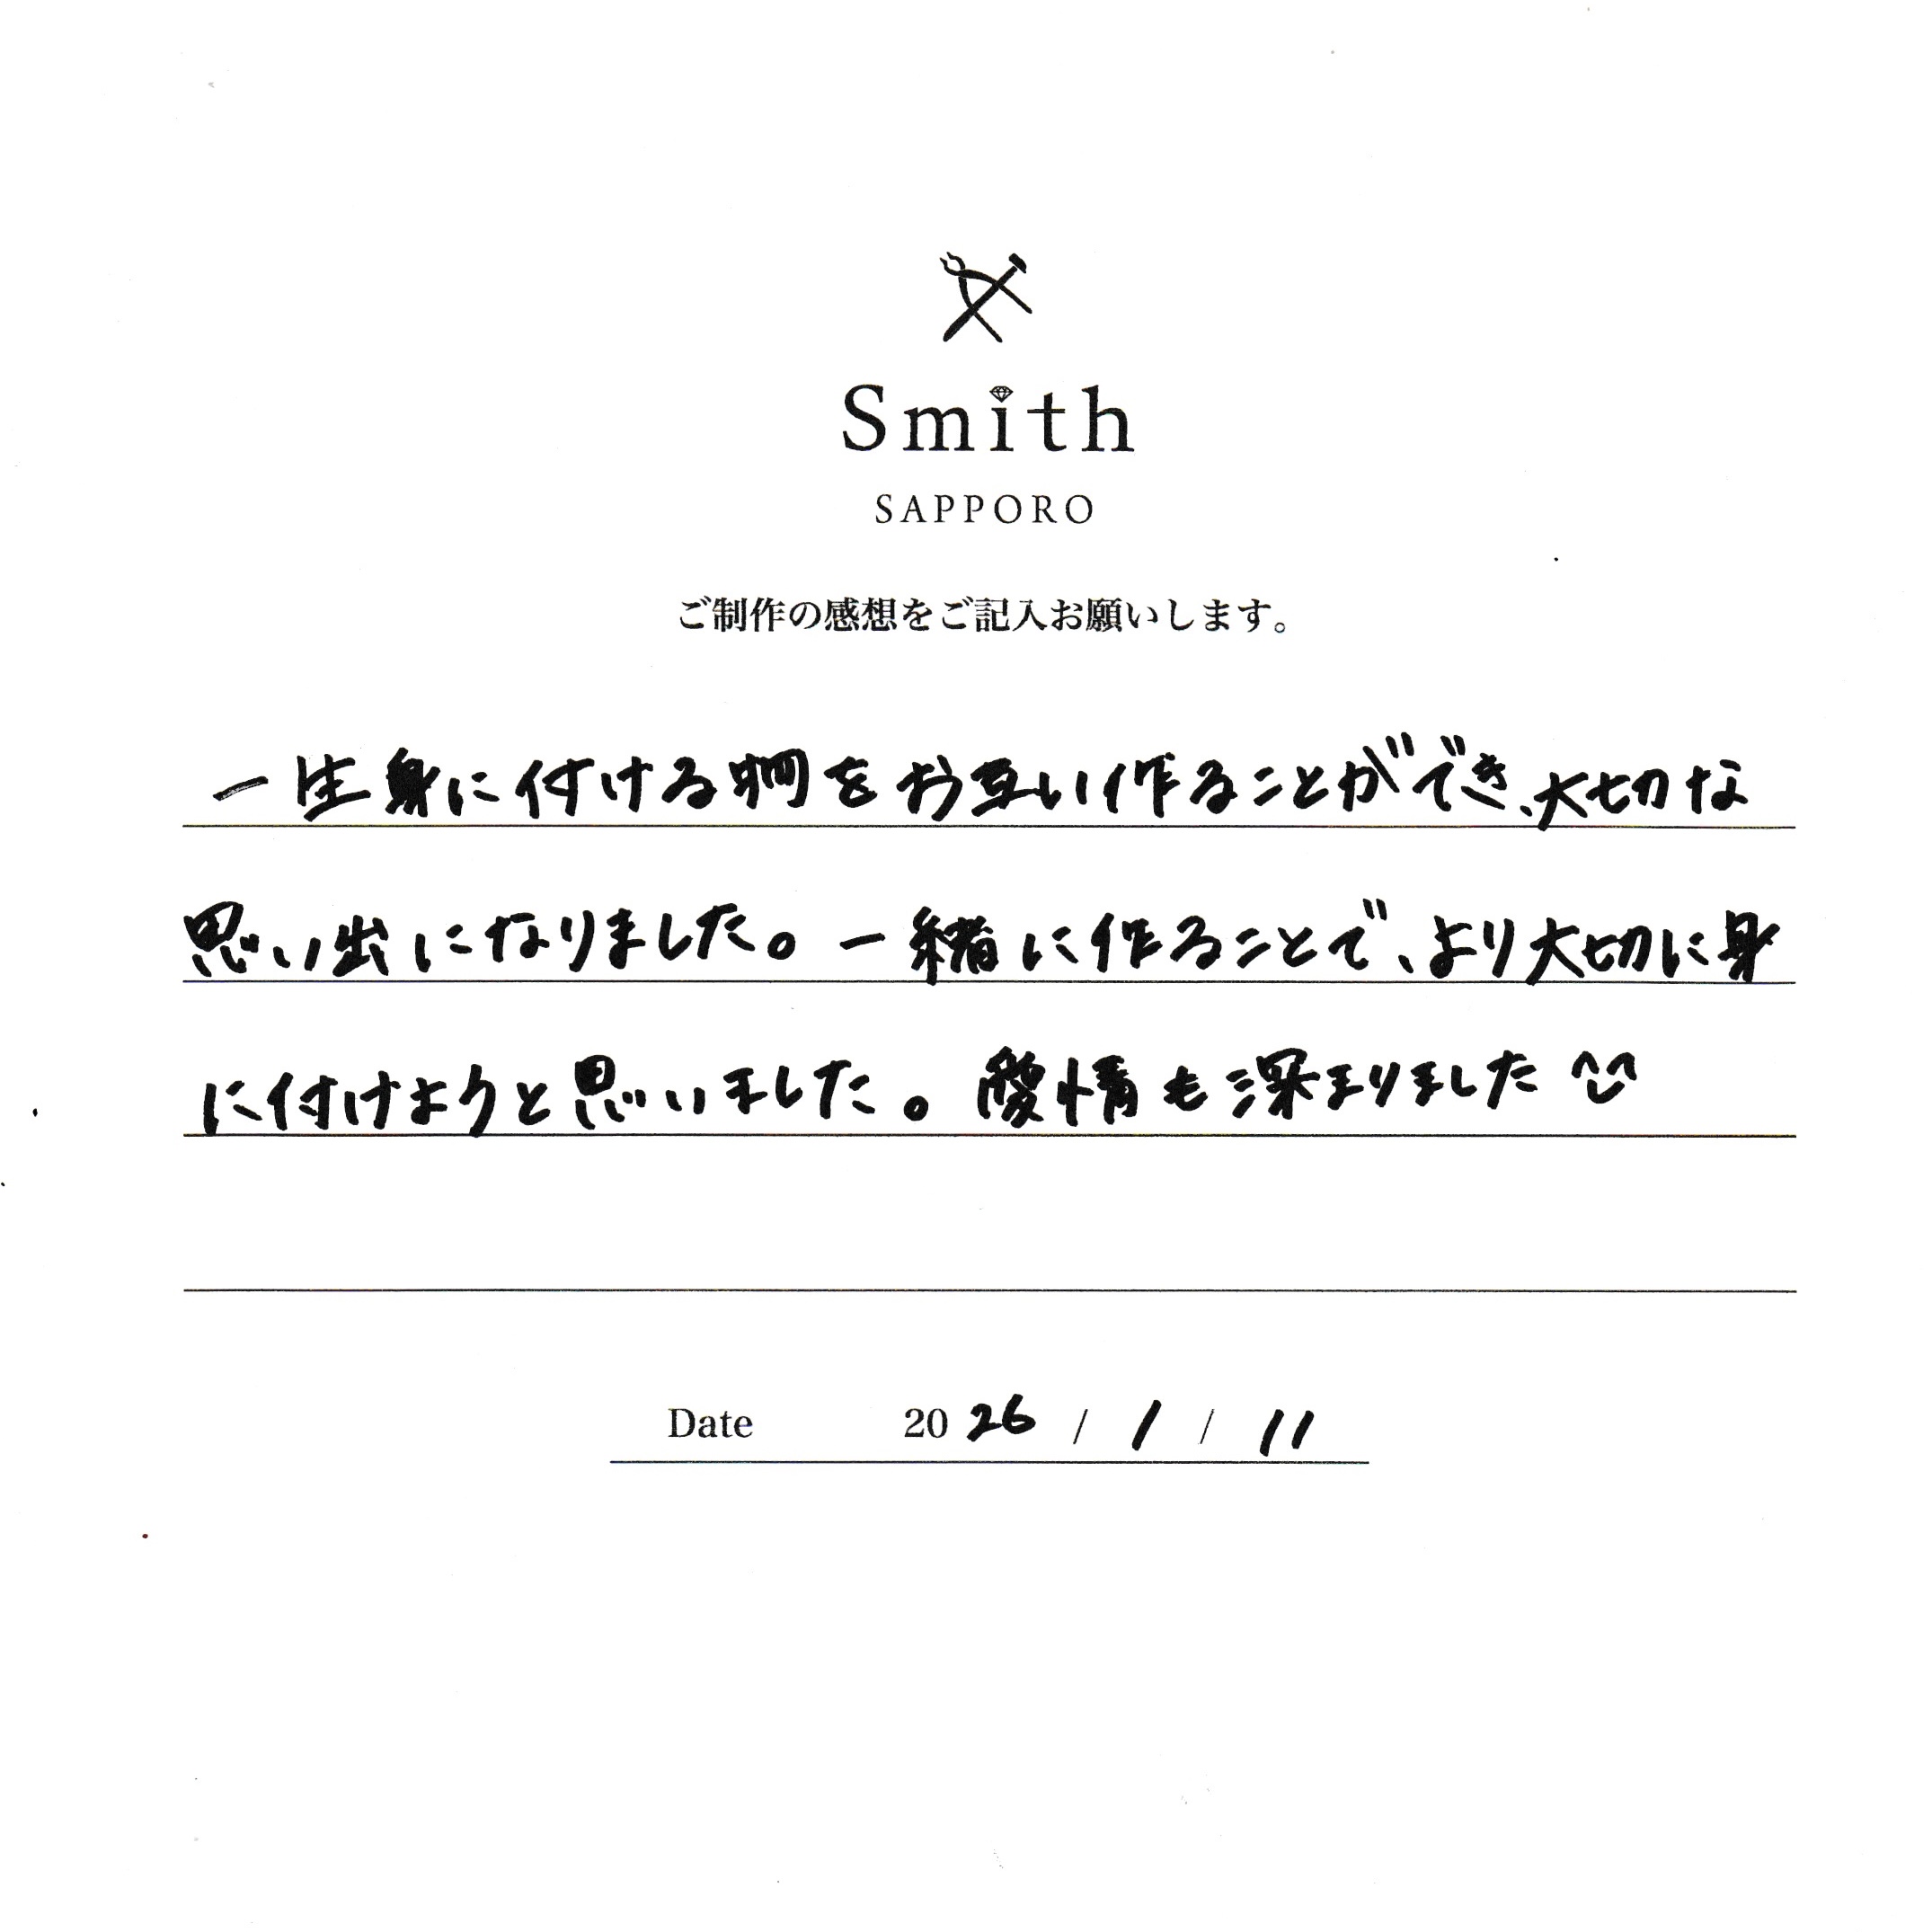 Smith
SAPPORO
ご制作の感想をご記入お願いします。
一生身に付ける物をお互い作ることができ、大切な
思い出になりました。一緒に作ることで、より大切に身
に付けようと思いました。愛情も深まりました
Date 2026 / 1 / 11